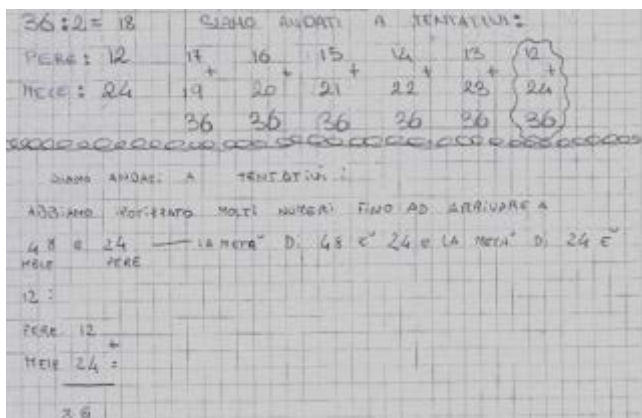 36:2= 18 SIAMO ANDATI A TENTATIVI:
PERE: 12 17 + 16 + 15 + 14 + 13 + 12 +
MELE: 24 19 20 21 22 23 24
36 36 36 36 36 36
SIAMO ANDATI A TENTATIVI:
ABBIAMO IPOTIZZATO MOLTI NUMERI FINO AD ARRIVARE A
48 e 24 — LA META' DI 48 E' 24 e LA META' DI 24 E'
MELE PERE
12:
PERE 12 +
MELE 24 =
36